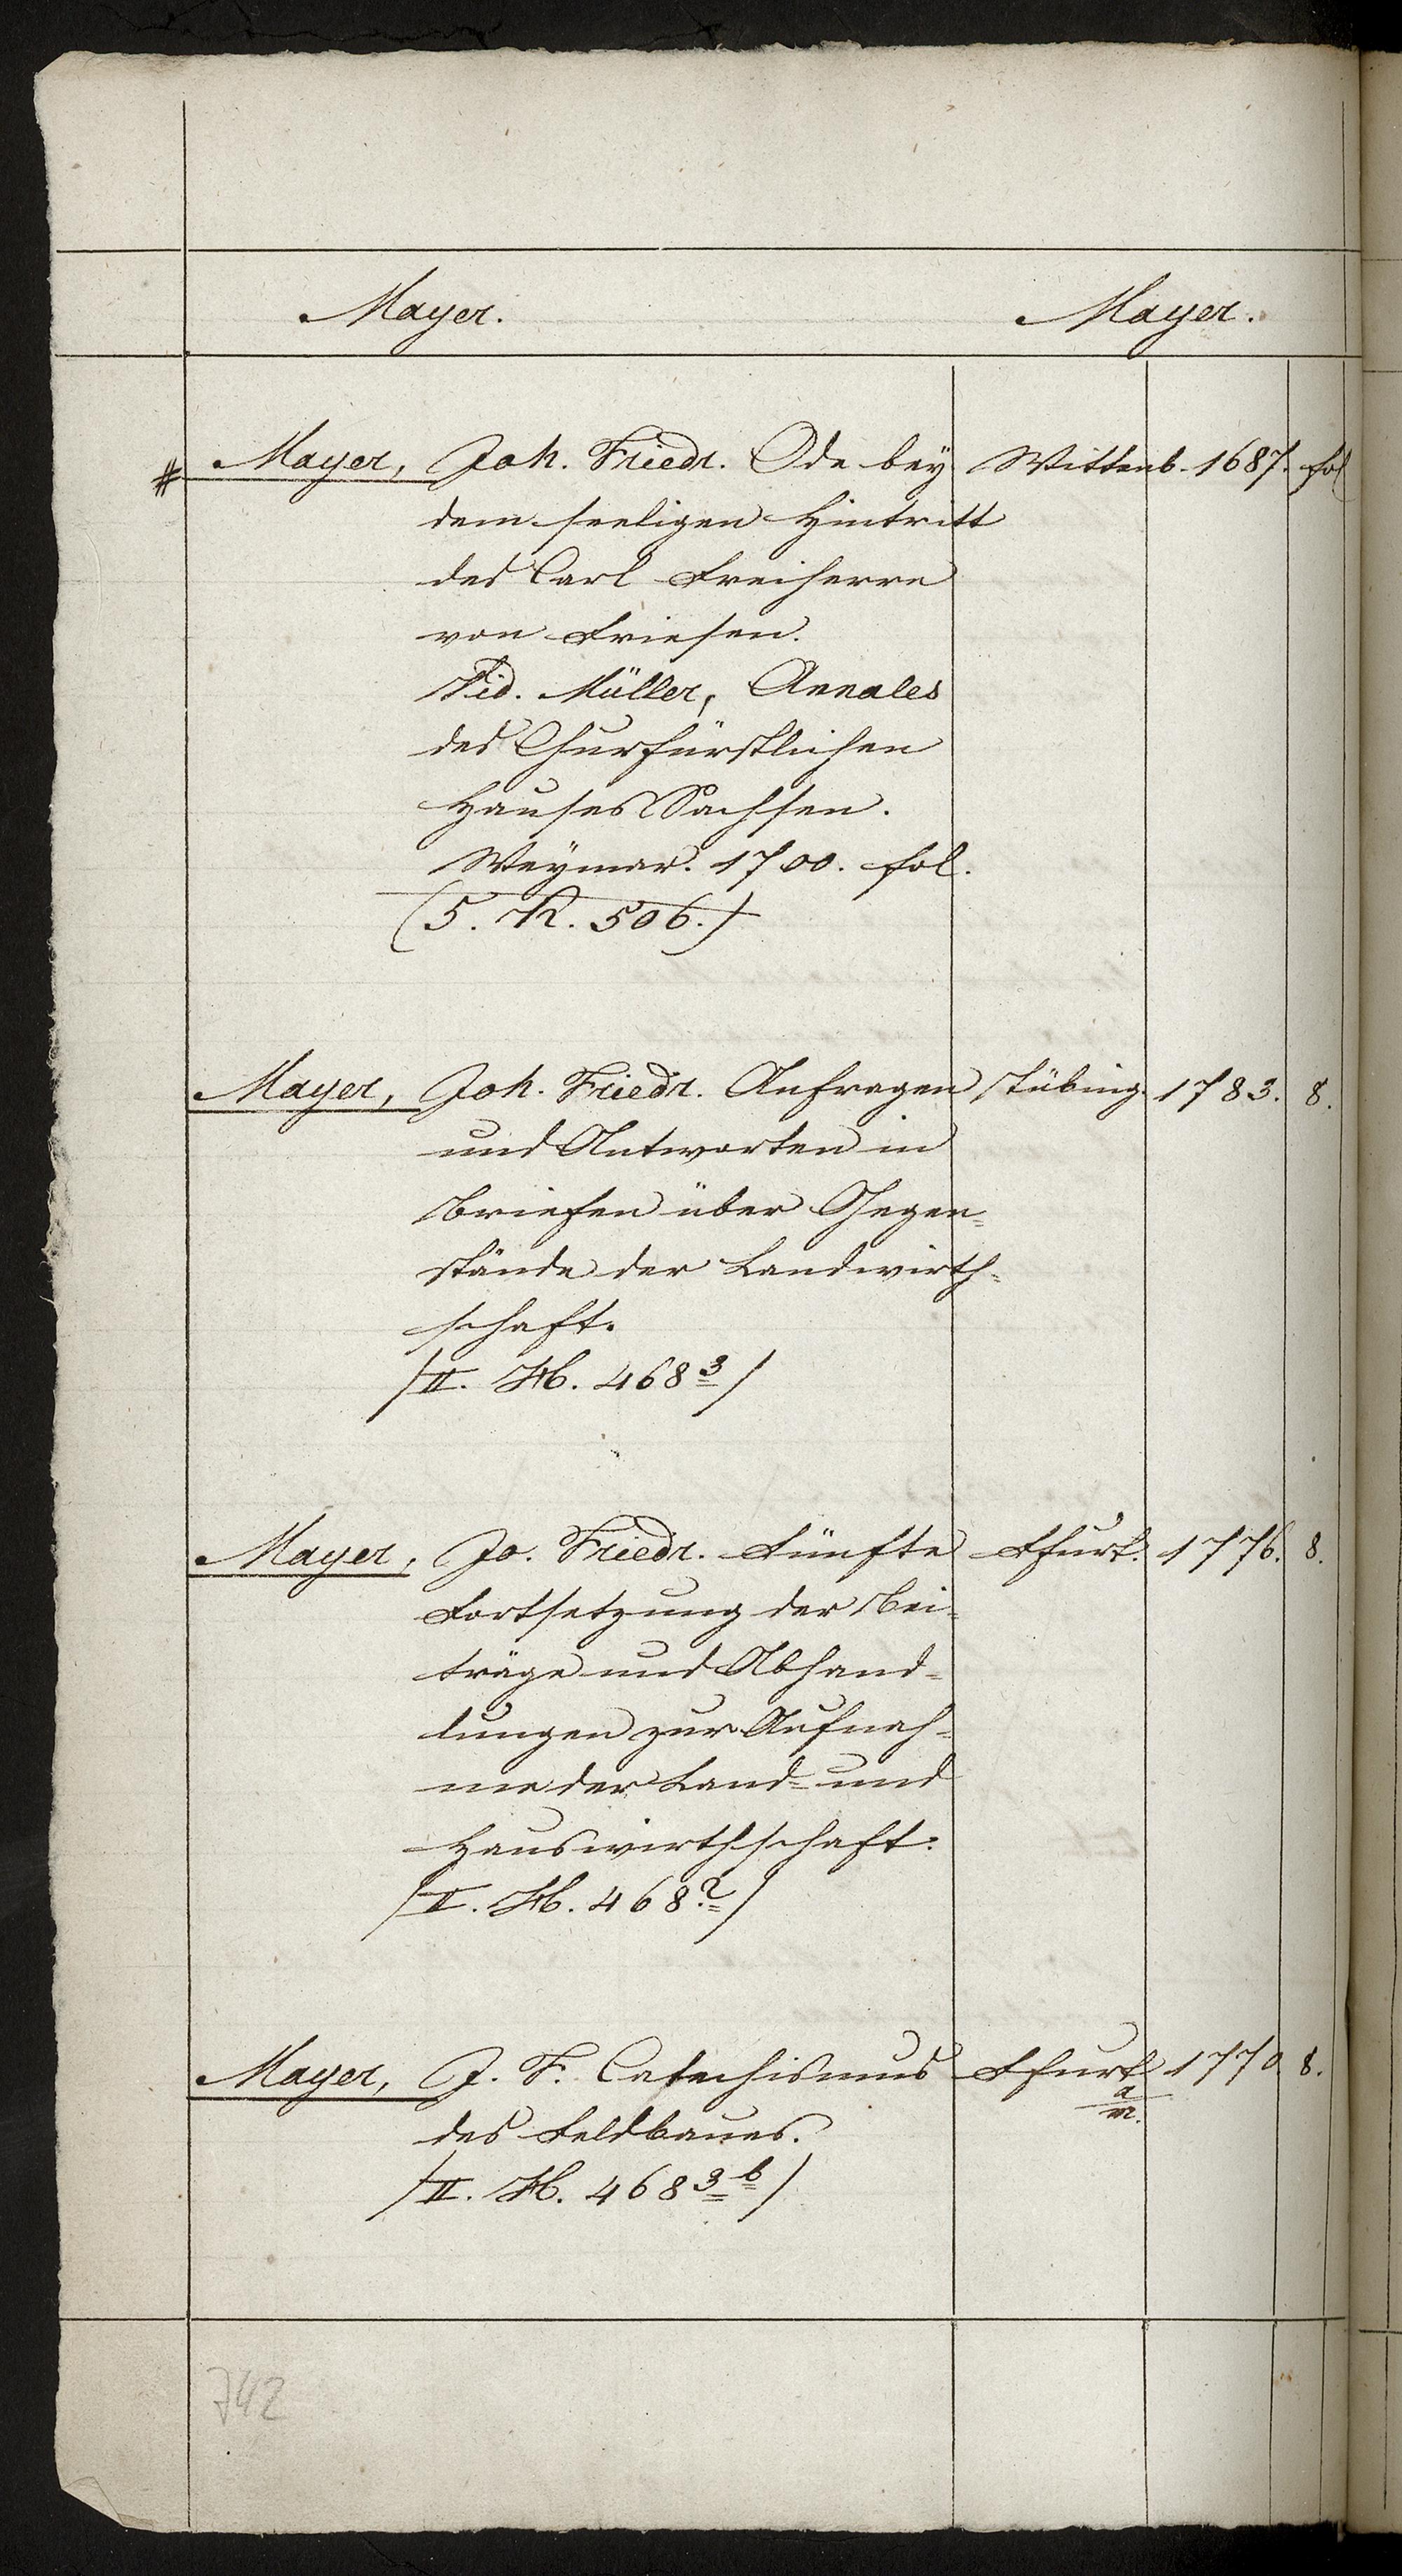 Mayer. Mayer.
# Mayer, Joh. Friedr. Ode bey Wittenb. 1687. fol
dem seeligen Hintritt
des Carl Freiherrn
von Friesen.
Vid. Müller, Annales
des Churfürstlichen
Hauses Sachsen.
Weymar. 1700. fol.
(5. R. 506.)
Mayer, Joh. Friedr. Anfragen Tübing. 1783. 8.
und Antworten in
Briefen über Gegen=
stände der Landwirth=
schaft.
/II. H. 468 3/
Mayer, Jo. Friedr. Fünfte Ffurt. 1776. 8.
Fortsetzung der Bei=
träge und Abhand=
lungen zur Aufnah=
me der Land= und
Hauswirthschaft.
/II. H. 468 2/
Mayer, J. F. Catechismus Ffurt 1770. 8.
a/m.
des Feldbaues.
/II. H. 468 3 b/
742